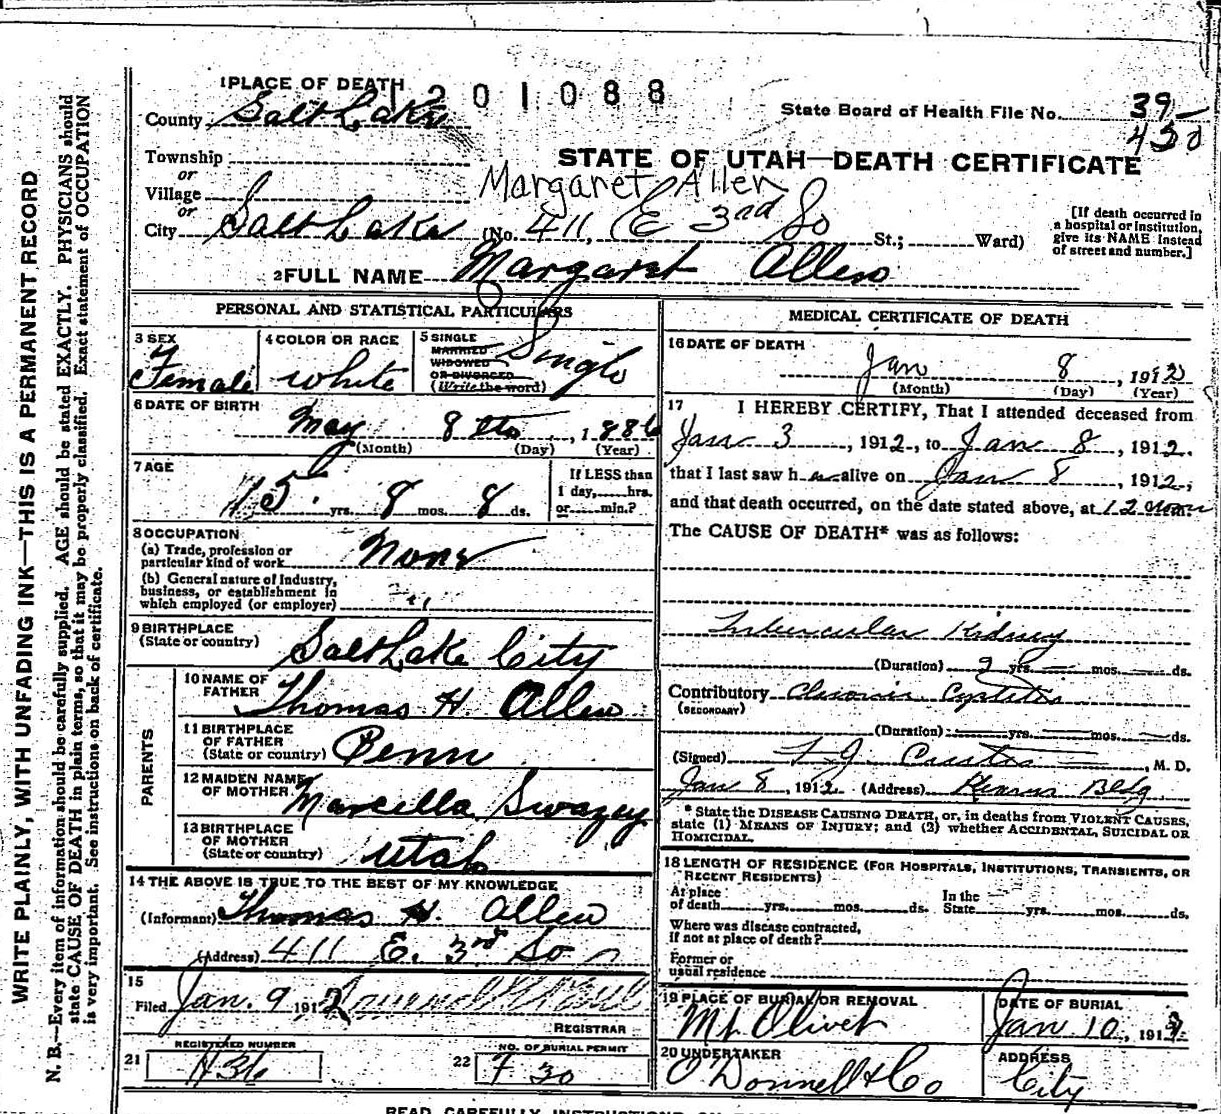 1 PLACE OF DEATH
1201088
State Board of Health File No. 39-
430
County Salt Lake
STATE OF UTAH—DEATH CERTIFICATE
Township
or
Village
or
Margaret Allen
City Salt Lake (No. 411, E 3rd So St.; Ward)
[If death occurred in
a hospital or institution,
give its NAME instead
of street and number.]
2 FULL NAME Margaret Allen
PERSONAL AND STATISTICAL PARTICULARS
3 SEX
Female
4 COLOR OR RACE
White
5 SINGLE
MARRIED
WIDOWED
OR DIVORCED
(Write the word)
Single
6 DATE OF BIRTH
May 8th, 1886
(Month) (Day) (Year)
7 AGE
15 yrs. 8 mos. 8 ds.
If LESS than
1 day, hrs.
or min.?
8 OCCUPATION
(a) Trade, profession or
particular kind of work None
(b) General nature of Industry,
business, or establishment in
which employed (or employer) "
9 BIRTHPLACE
(State or country) Salt Lake City
PARENTS
10 NAME OF
FATHER Thomas H. Allen
11 BIRTHPLACE
OF FATHER
(State or country) Penn
12 MAIDEN NAME
OF MOTHER Marcella Swazey
13 BIRTHPLACE
OF MOTHER
(State or country) Utah
14 THE ABOVE IS TRUE TO THE BEST OF MY KNOWLEDGE
(Informant) Thomas H. Allen
(Address) 411 E. 3rd So
15
Filed Jan. 9 1912
REGISTRAR
21 REGISTERED NUMBER
H36
22 NO. OF BURIAL PERMIT
F 30
MEDICAL CERTIFICATE OF DEATH
16 DATE OF DEATH
Jan 8, 1912
(Month) (Day) (Year)
17 I HEREBY CERTIFY, That I attended deceased from
Jan 3, 1912., to Jan 8, 1912.
that I last saw her alive on Jan 8, 1912,
and that death occurred, on the date stated above, at 12 noon
The CAUSE OF DEATH* was as follows:
Tubercular Kidney
(Duration) 2 yrs. mos. ds.
Contributory Chronic Cystitis
(SECONDARY)
(Duration) yrs. mos. ds.
(Signed) , M. D.
Jan 8, 1912 (Address) Kearns Bldg
* State the DISEASE CAUSING DEATH, or, in deaths from VIOLENT CAUSES,
state (1) MEANS OF INJURY; and (2) whether ACCIDENTAL, SUICIDAL OR
HOMICIDAL.
18 LENGTH OF RESIDENCE (FOR HOSPITALS, INSTITUTIONS, TRANSIENTS, OR
RECENT RESIDENTS)
At place
of death yrs. mos. ds.
In the
State yrs. mos. ds.
Where was disease contracted,
if not at place of death?
Former or
usual residence
19 PLACE OF BURIAL OR REMOVAL
Mt. Olivet
DATE OF BURIAL
Jan 10, 1912
20 UNDERTAKER
O'Donnell & Co
ADDRESS
City
WRITE PLAINLY, WITH UNFADING INK—THIS IS A PERMANENT RECORD
N. B.—Every item of information should be carefully supplied. AGE should be stated EXACTLY. PHYSICIANS should
state CAUSE OF DEATH in plain terms, so that it may be properly classified. Exact statement of OCCUPATION
is very important. See instructions on back of certificate.